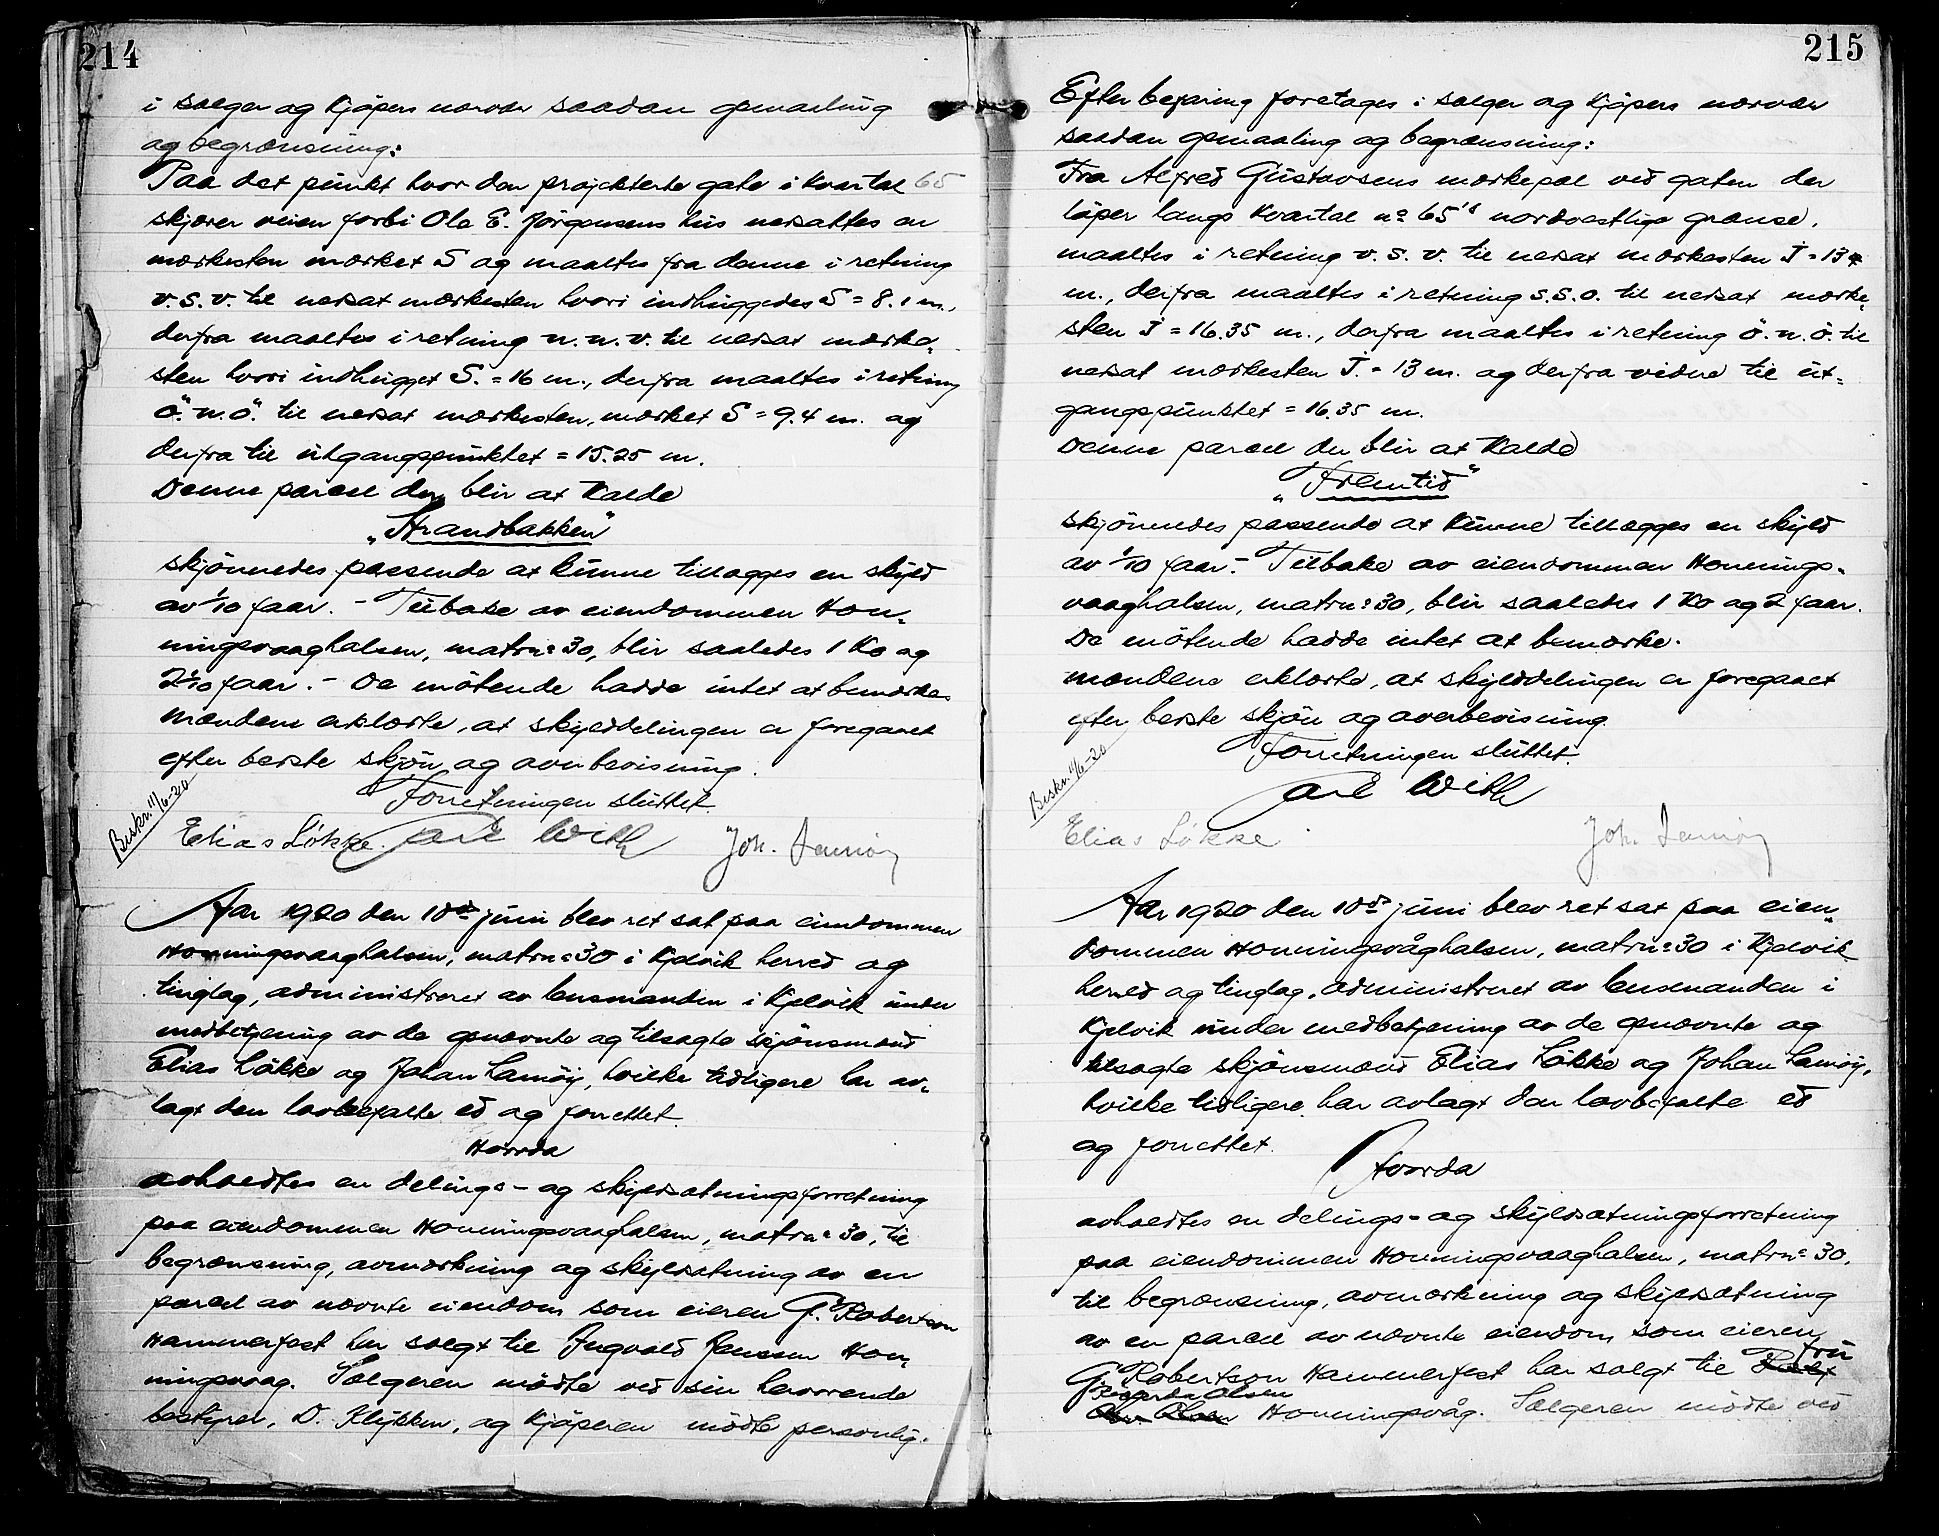 214
i sælger og kjøpers nærvær saadan opmaaling
og begrænsning:
Paa det punkt hvor den projekterte gate i kvartal 65
skjærer veien forbi Ole E. Jörgensens hus nedsattes en
merkesten merket S og maaltes fra denne i retning
v.s.v. til nedsat merkesten hvori indhuggedes S = 8.1 m.,
derfra maaltes i retning n.n.v. til nedsat merke-
sten hvori indhugget S. = 16 m., derfra maaltes i retning
ö.n.ö. til nedsat merkesten, merket S = 9.4 m. og
derfra til utgangspunktet = 15.25 m.
Denne parcel der blir at kalde
„Strandbakken"
skjönnedes passende at kunne tillægges en skyld
av 1/10 faar. - Tilbake av eiendommen Hon-
ningsvaaghalsen, matrn: 30, blir saaledes 1 ko og
2 1/10 faar. - De mötende hadde intet at bemerke.
Mændene erklærte, at skylddelingen er foregaaet
efter beste skjön og overbevisning.
Forretningen sluttet.
Beskr. 11/6-20
Elias Løkke. Carl With Joh. Lamöy
Aar 1920 den 10de juni blev ret sat paa eiendommen
Honningsvaaghalsen, matrn: 30 i Kjelvik herred og
tinglag, administreret av lensmanden i Kjelvik under
medbetjening av de opnævnte og tilsagte skjönsmænd
Elias Løkke og Johan Lamöy, hvilke tidligere har av-
lagt den lovbefalte ed og forrettet.
Hvorda
avholdtes en delings- og skyldsætningsforretning
paa eiendommen Honningsvaaghalsen, matrn: 30, til
begrænsning, avmerkning og skyldsætning av en
parcel av nævnte eiendom som eieren G. Robertson
Hammerfest har solgt til Ingvald Jensen Hon-
ningsvaag. Sælgeren mødte ved sin herværende
bestyrer, D. Klykken, og kjöperen mødte personlig.
215
Efter befaring foretages i sælger og kjøpers nærvær
saadan opmaaling og begrænsning:
Fra Alfred Gustavsens merkepæl ved gaten der
löper langs kvartal no 65's nordvestlige grænse,
maaltes i retning v.s.v. til nedsat merkesten I = 13
m., derfra maaltes i retning s.s.o. til nedsat merke-
sten I = 16.35 m., derfra maaltes i retning ö.n.ö. til
nedsat merkesten I. = 13 m. og derfra videre til ut-
gangspunktet = 16.35 m.
Denne parcel der blir at kalde
„Fremtid"
skjönnedes passende at kunne tillægges en skyld
av 1/10 faar. - Tilbake av eiendommen Honnings-
vaaghalsen, matrn: 30, blir saaledes 1 ko og 2 faar.
De mötende hadde intet at bemerke.
Mændene erklærte, at skylddelingen er foregaaet
efter beste skjön og overbevisning.
Forretningen sluttet.
Beskr. 11/6-20
Carl With
Elias Løkke Joh. Lamöy
Aar 1920 den 10de juni blev ret sat paa eien-
dommen Honningsvåghalsen, matrn: 30 i Kjelvik
herred og tinglag, administreret av lensmanden i
Kjelvik under medbetjening av de opnævnte og
tilsagte skjönsmænd Elias Løkke og Johan Lamöy,
hvilke tidligere har avlagt den lovbefalte ed
og forrettet.
Hvorda
avholdtes en delings- og skyldsætningsforretning
paa eiendommen Honningsvaaghalsen, matrn: 30,
til begrænsning, avmerkning og skyldsætning
av en parcel av nævnte eiendom som eieren
G. Robertson Hammerfest har solgt til fru
Olsen Honningsvåg. Sælgeren mødte ved